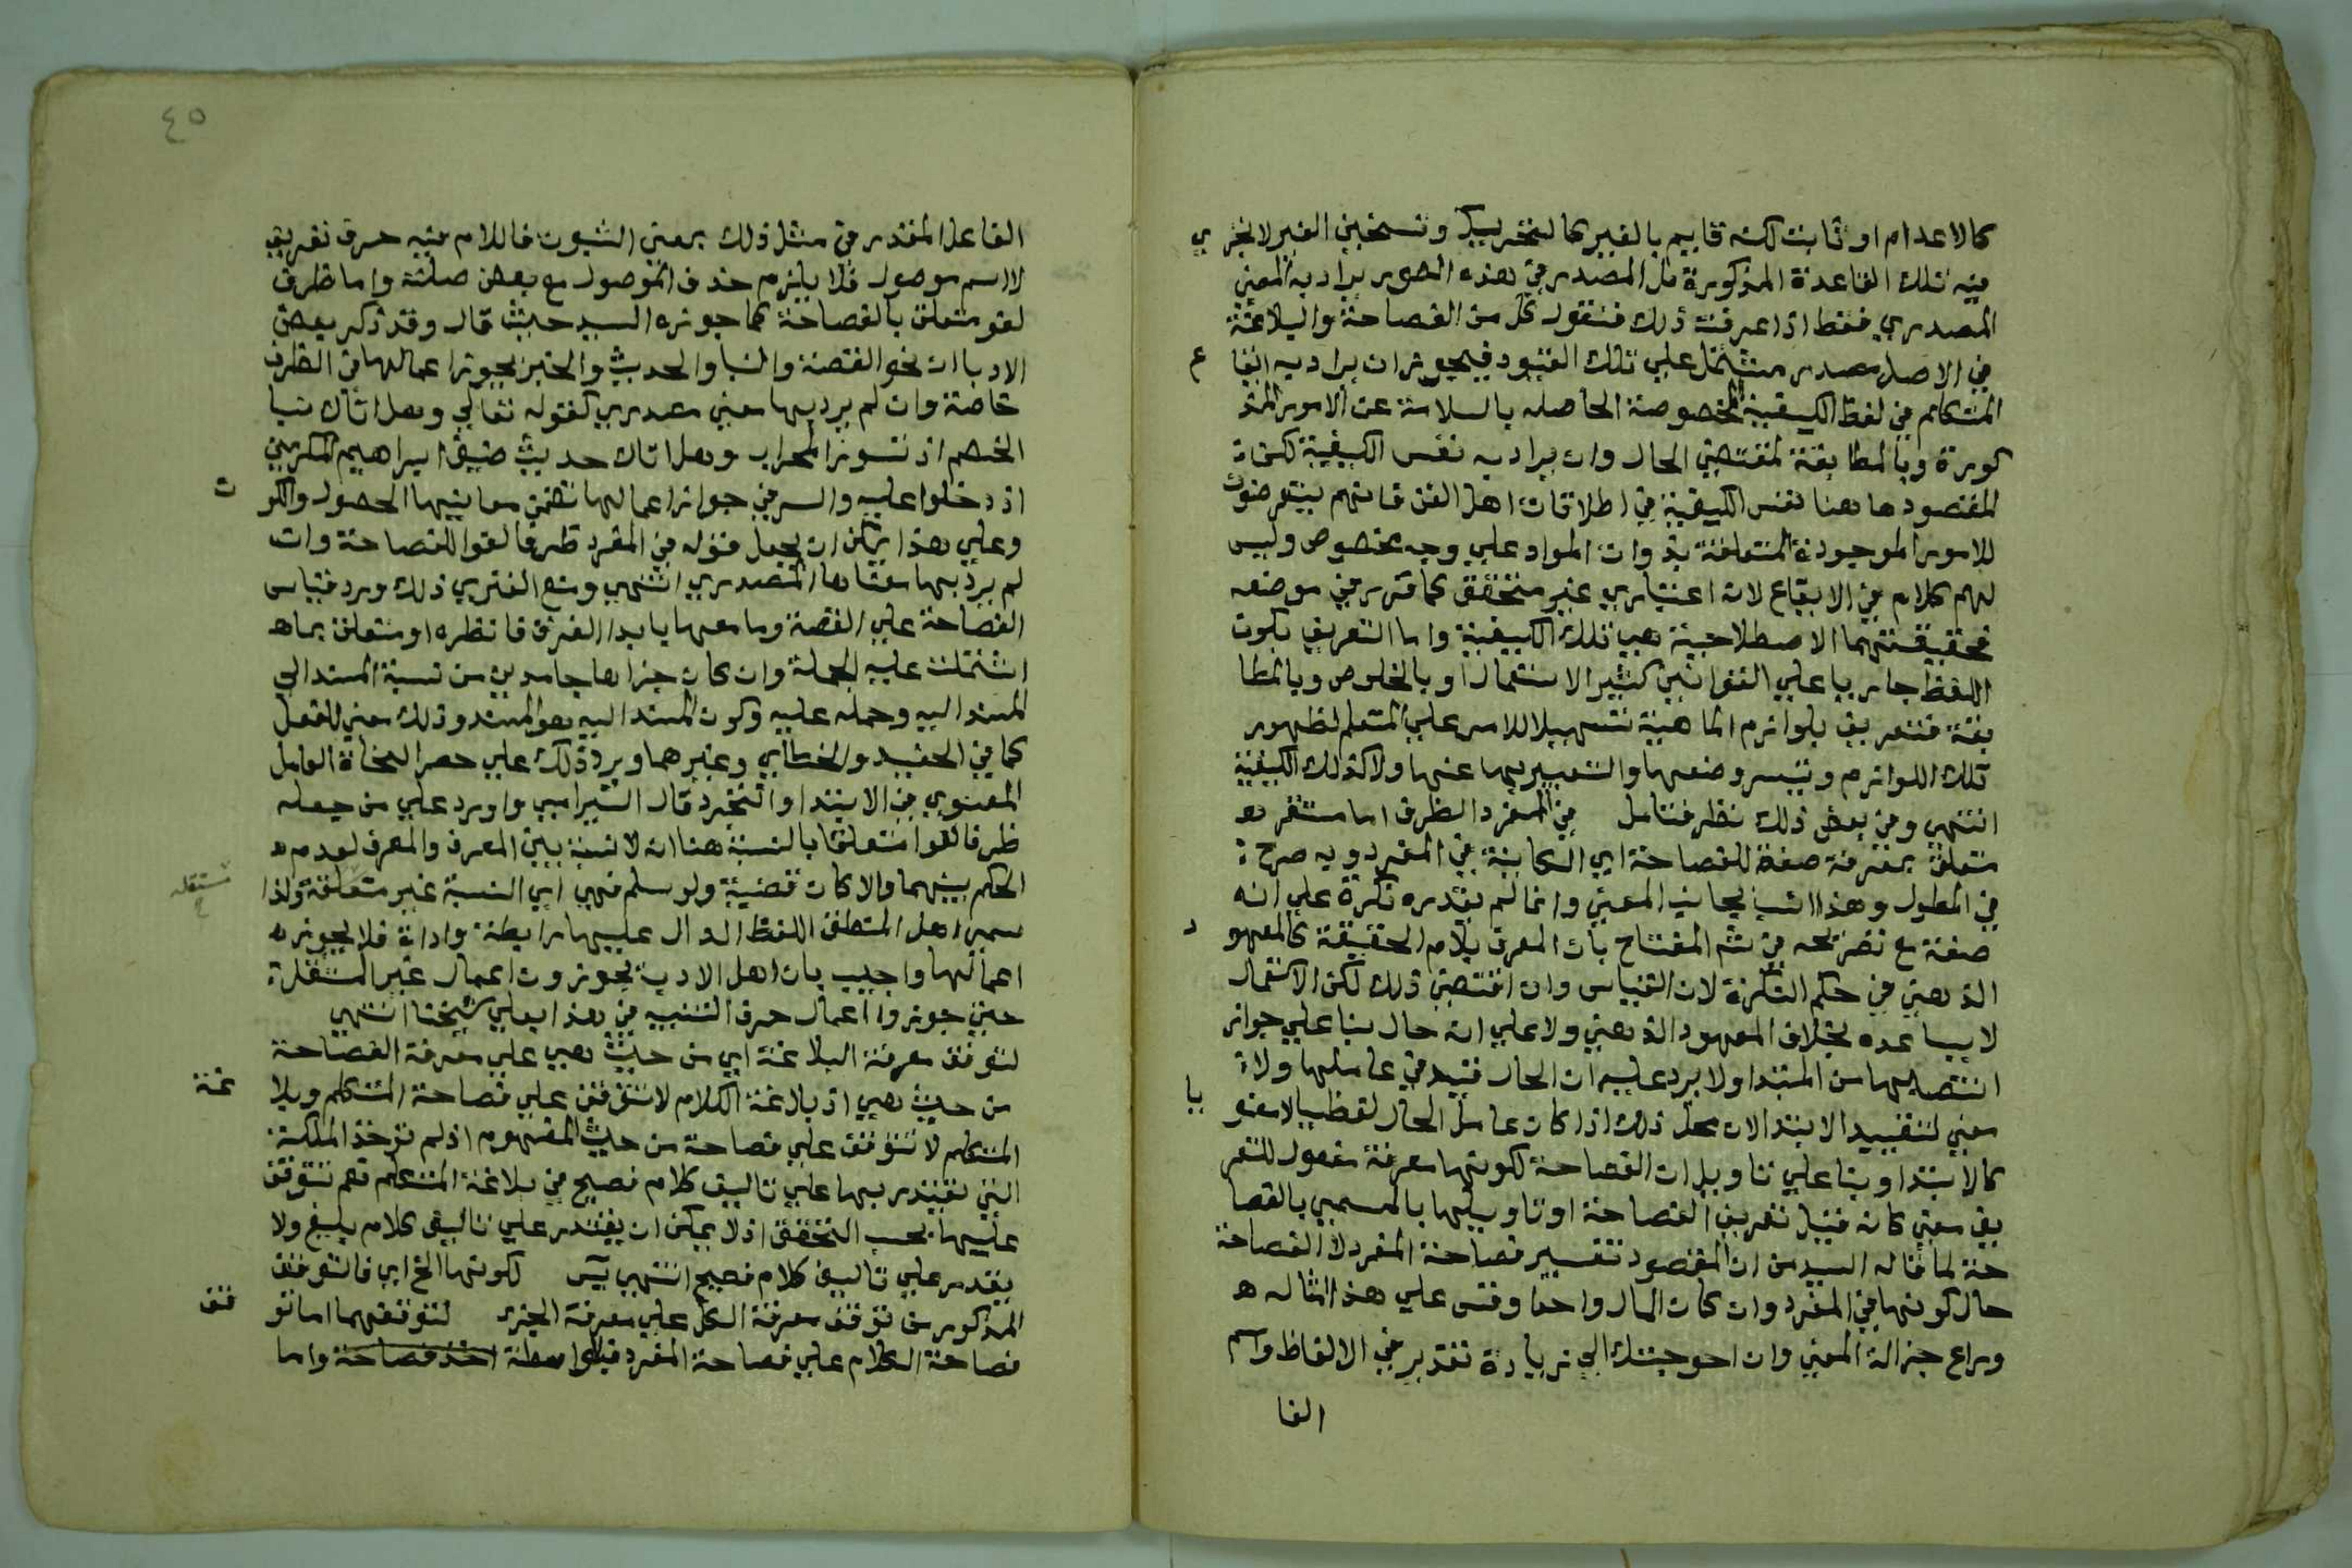 كالاعدام او ثابت لكنه قايم بالغير كالتحريك وتسخين الغير لا تجري
فيه تلك القاعدة المذكورة بل المصدر في هذه الصور يراد به المعني
المصدري فقط اذا عرفت ذلك فنقول كل من الفصاحة والبلاغة
في الاصل مصدر مشتمل علي تلك القيود فيجوز ان يراد به ايقاع
المتكلم في لفظ الكيفية المخصوصة الحاصلة بالسلامة عن الامور المذ
كورة وبالمطابقة لمقتضي الحال وان يراد به نفس الكيفية لكن
المقصود هاهنا نفس الكيفية في اطلاقات اهل الفن فانهم يتعرضون
للامور الموجودة المتعلقة بذوات المواد علي وجه مخصوص وليس
لهم كلام في الايقاع لانه اعتباري غير متحقق كما قرر في موضعه
فحقيقتهما الاصطلاحية هي تلك الكيفية واما التعريف بكون
اللفظ جاريا علي القوانين كثير الاستعمال او بالخلوص وبالمطا
بقة فتعريف بلوازم الماهية تسهيلا للامر علي المتعلم لظهور
تلك اللوازم وتيسر وضعها والتعبير بها عنها ولا كذلك الكيفية
انتهي وفي بعض ذلك نظر فتامل في المفرد الظرف اما مستقر
متعلق بمعرفة صفة للفصاحة اي الكاينة في المفرد وبه صرح
في المطول وهذا انسب بجانب المعني وانما لم يقدره نكرة علي انه
صفة مع تصريحه في شرح المفتاح بان المعرف بلام الحقيقة كالمعهود
الذهني في حكم النكرة لان القياس وان اقتضي ذلك لكن الاستعمال
لا يساعده بخلاف المعهود الذهني ولا علي انه حال بنا علي جواز
انتصابها من المبتدا ولا يرد عليه ان الحال قيد في عاملها ولا
معني لتقييد الابتدا لان محل ذلك اذا كان عامل الحال لفظيا لا معنويا
كالابتدا وبنا علي تاويل ان الفصاحة لكونها معرفة مفعول للتعر
يف معني كانه قيل تعريف الفصاحة او تاويلها بالمسمي بالفصا
حة لما قاله السيد من ان المقصود تفسير فصاحة المفرد لا الفصاحة
حال كونها في المفرد وان كان المال واحدا وقس علي هذا امثاله
وراع جزالة المعني وان احوجتك الي زيادة تقدير في الالفاظ واسم
الفا
٤٥
الفاعل المقدر في مثل ذلك بمعني الثبوت فاللام فيه حرف تعريف
لا اسم موصول فلا يلزم حذف الموصول مع بعض صلته واما ظرف
لغو متعلق بالفصاحة كما جوزه السيد حيث قال وقد ذكر بعض
الادبا ان نحو القصة والنبا والحديث والخبر يجوز اعمالها في الظرف
خاصة وان لم يرد بها معني مصدري كقوله تعالي وهل اتاك نبا
الخصم اذ تسوروا المحراب وهل اتاك حديث ضيف ابراهيم المكرمين
اذ دخلوا عليه والسر في جواز اعمالها تضمن معانيها الحصول والكون
وعلي هذا يمكن ان يجعل قوله في المفرد ظرفا لغوا للفصاحة وان
لم يرد بها معناها المصدري انتهي ومنع الفنري ذلك ورد قياس
الفصاحة علي القصة وما معها بابدا الفرق فانظره او متعلق بما
اشتملت عليه الجملة وان كان جزاها جامدين من نسبة المسند الي
المسند اليه وحمله عليه وكون المسند اليه هو المسند وذلك معني الفعل
كما في الحفيد والخطابي وغيرهما ويرد ذلك علي حصر النحاة العامل
المعنوي في الابتدا والتجرد قال الشيرامي واورد علي من جعله
ظرفا لغوا متعلقا بالنسبة هنا انه لا نسبة بين المعرف والمعرف لعدم
الحكم بينهما والا كان قضية ولو سلم فهي اي النسبة غير متعلقة ولذا
مستقله
سمي اهل المنطق اللفظ الدال عليها رابطة واداة فلا يجوز
اعمالها واجيب بان اهل الادب يجوزون اعمال غير المستقلة
حتي جوزوا اعمال حرف التنبيه في هذا بعلي شيخنا انتهي
لتوقف معرفة البلاغة اي من حيث هي علي معرفة الفصاحة
من حيث هي اذ بلاغة الكلام لا تتوقف علي فصاحة المتكلم وبلاغة
المتكلم لا تتوقف علي فصاحة من حيث المفهوم اذ لم توخذ الملكة
التي يقتدر بها علي تاليف كلام فصيح في بلاغة المتكلم نعم تتوقف
عليها بحسب التحقق اذ لا يمكن ان يقتدر علي تاليف كلام بليغ ولا
يقدر علي تاليف كلام فصيح انتهي يس لكونها الخ اي فالتوقف
المذكور من توقف معرفة الكل علي معرفة الجزء لتوقفهما اما توقف
فصاحة الكلام علي فصاحة المفرد فبلا واسطة اخذ فصاحة واما